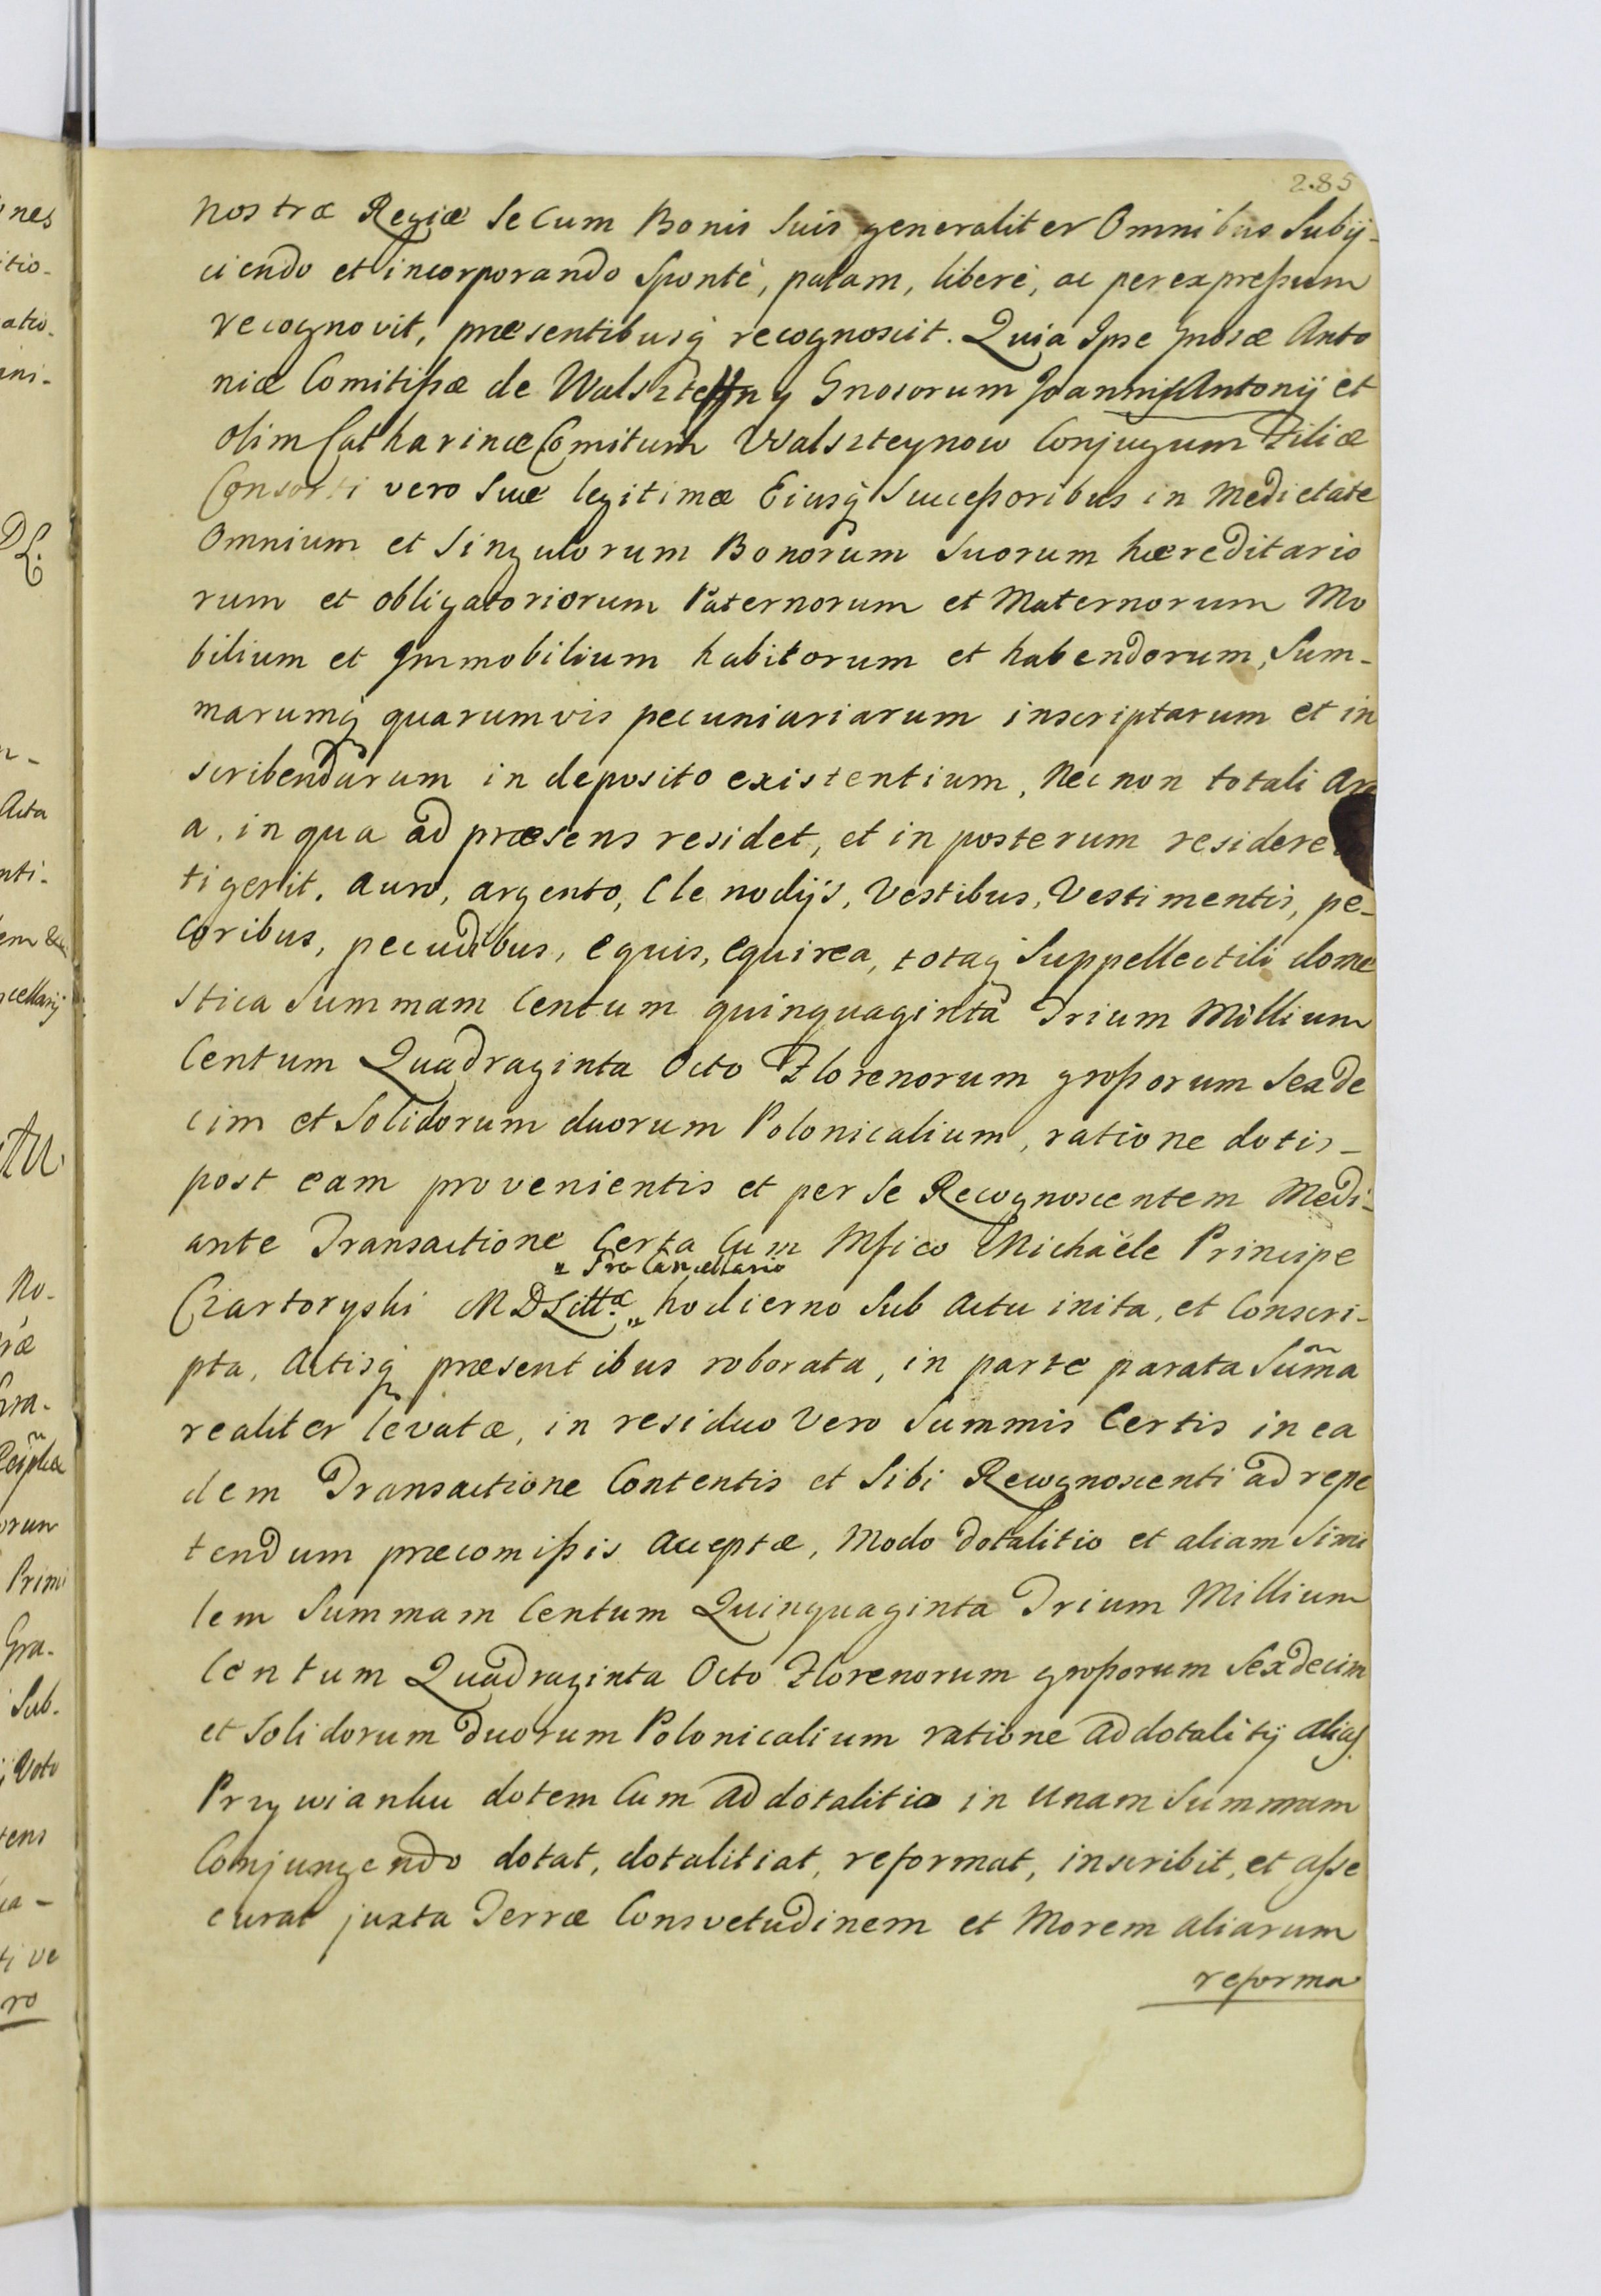 285
nostræ Regiæ se cum Bonis suis generaliter Omnibus Subij-
ciendo et incorporando Spontè, palam, liberè, ac per expressum
recognovit, præsentibusq recognoscit. Quia Ipse Gnosæ Anto
niæ Comitissæ de Walszteyny Gnosorum Joannis Antonij et
olim Catharinæ Comitum Walszteynow Conjugum Filiæ
Consorti vero suæ legitimæ Eiusq Successoribus in Medietate
Omnium et Singulorum Bonorum Suorum hæreditario
rum et obligatoriorum Paternorum et Maternorum Mo
bilium et Immobilium habitorum et habendorum, Sum-
marumq quarumvis pecuniariarum inscriptarum et in
scribendarum in deposito existentium, Nec non totali
a, in qua ad præsens residet, et in posterum residere
tigerit, auro, argento, Clenodijs, Vestibus, Vestimentis, pe-
coribus, pecudibus, equis, equirea, totaq Suppellectili dome
stica Summam Centum quinquaginta Trium Millium
Centum Quadraginta Octo Florenorum grossorum Sexde
cim et Solidorum duorum Polonicalium, ratione dotis -
post eam provenientis et per se Recognoscentem Medi-
ante Transactione Certa Cum Mfico Michaële Principe
" Pro Cancellario
Czartoryski M D Littæ " hodierno Sub Actu inita, et Conscri-
pta, Actisq præsentibus roborata, in parte parata Sum̃a
realiter levatæ, in residuo Vero Summis Certis in ea
dem Transactione Contentis et Sibi Recognoscenti ad repe
tendum præcomissis acceptæ, Modo dotalitio et aliam Simi
lem Summam Centum Quinquaginta Trium Millium
Centum Quadraginta Octo Florenorum grossorum Sexdecim
et Solidorum duorum Polonicalium ratione addotalitij alias
Przywianku dotem Cum addotalitio in Unam Summam
Conjungendo dotat, dotalitiat, reformat, inscribit, et asse
curat juxta Terræ Consvetudinem et Morem aliarum
reforma